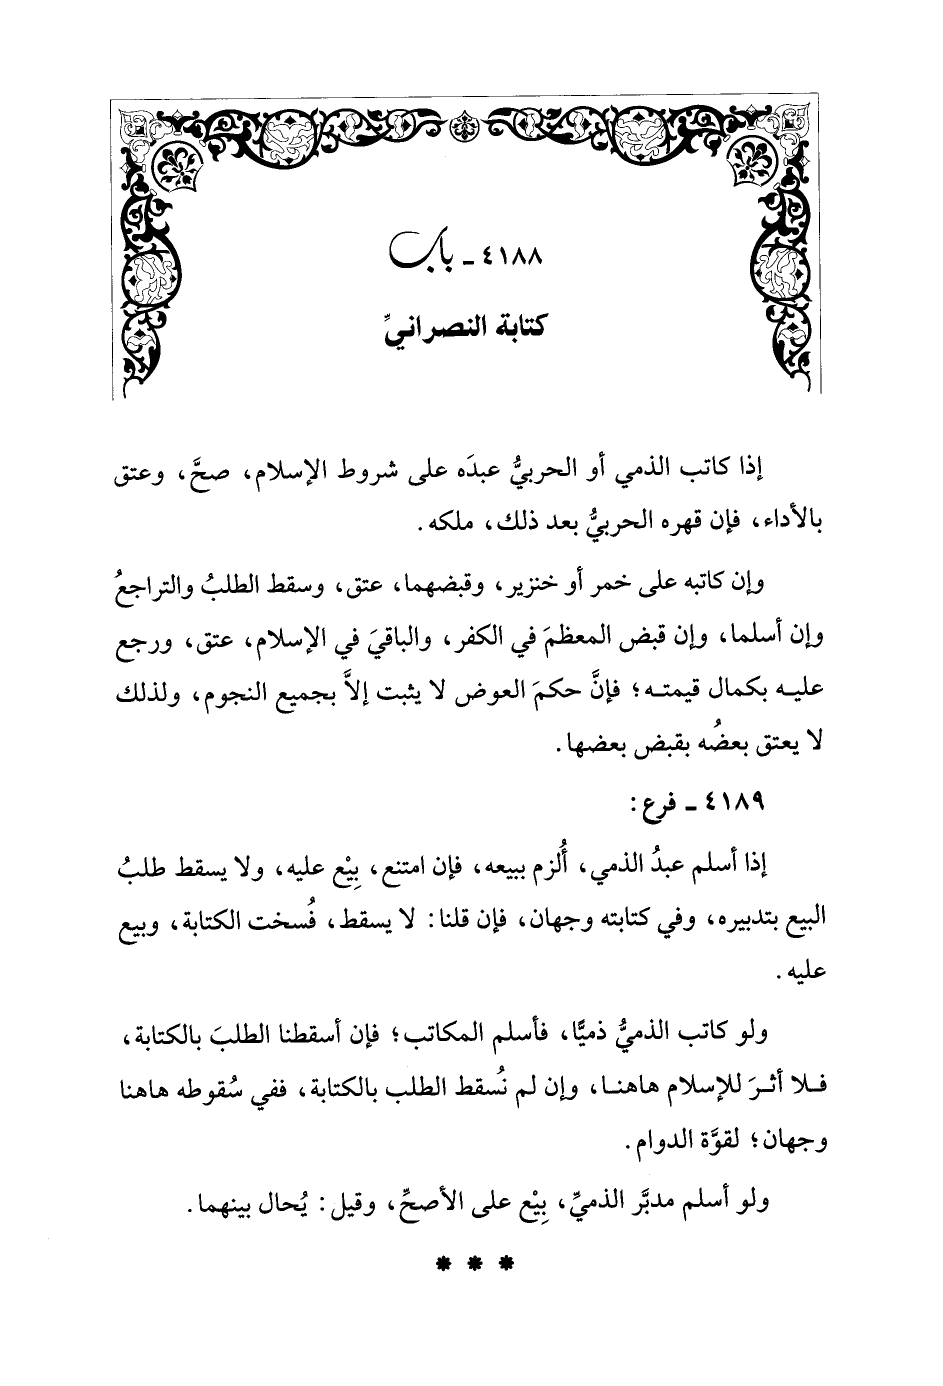 ٤١٨٨ ـ باب
كتابة النصرانيِّ
إذا كاتب الذمي أو الحربيُّ عبدَه على شروط الإسلام، صحَّ، وعتق
بالأداء، فإن قهره الحربيُّ بعد ذلك، ملكه.
وإن كاتبه على خمر أو خنزير، وقبضهما، عتق، وسقط الطلبُ والتراجعُ
وإن أسلما، وإن قبض المعظمَ في الكفر، والباقيَ في الإسلام، عتق، ورجع
عليه بكمال قيمته؛ فإنَّ حكمَ العوض لا يثبت إلاَّ بجميع النجوم، ولذلك
لا يعتق بعضُه بقبض بعضها.
٤١٨٩ ـ فرع:
إذا أسلم عبدُ الذمي، أُلزم ببيعه، فإن امتنع، بِيْع عليه، ولا يسقط طلبُ
البيع بتدبيره، وفي كتابته وجهان، فإن قلنا: لا يسقط، فُسخت الكتابة، وبيع
عليه.
ولو كاتب الذميُّ ذميًّا، فأسلم المكاتب؛ فإن أسقطنا الطلبَ بالكتابة،
فلا أثرَ للإسلام هاهنا، وإن لم نُسقط الطلب بالكتابة، ففي سُقوطه هاهنا
وجهان؛ لقوَّة الدوام.
ولو أسلم مدبَّر الذميِّ، بِيْع على الأصحِّ، وقيل: يُحال بينهما.
* * *